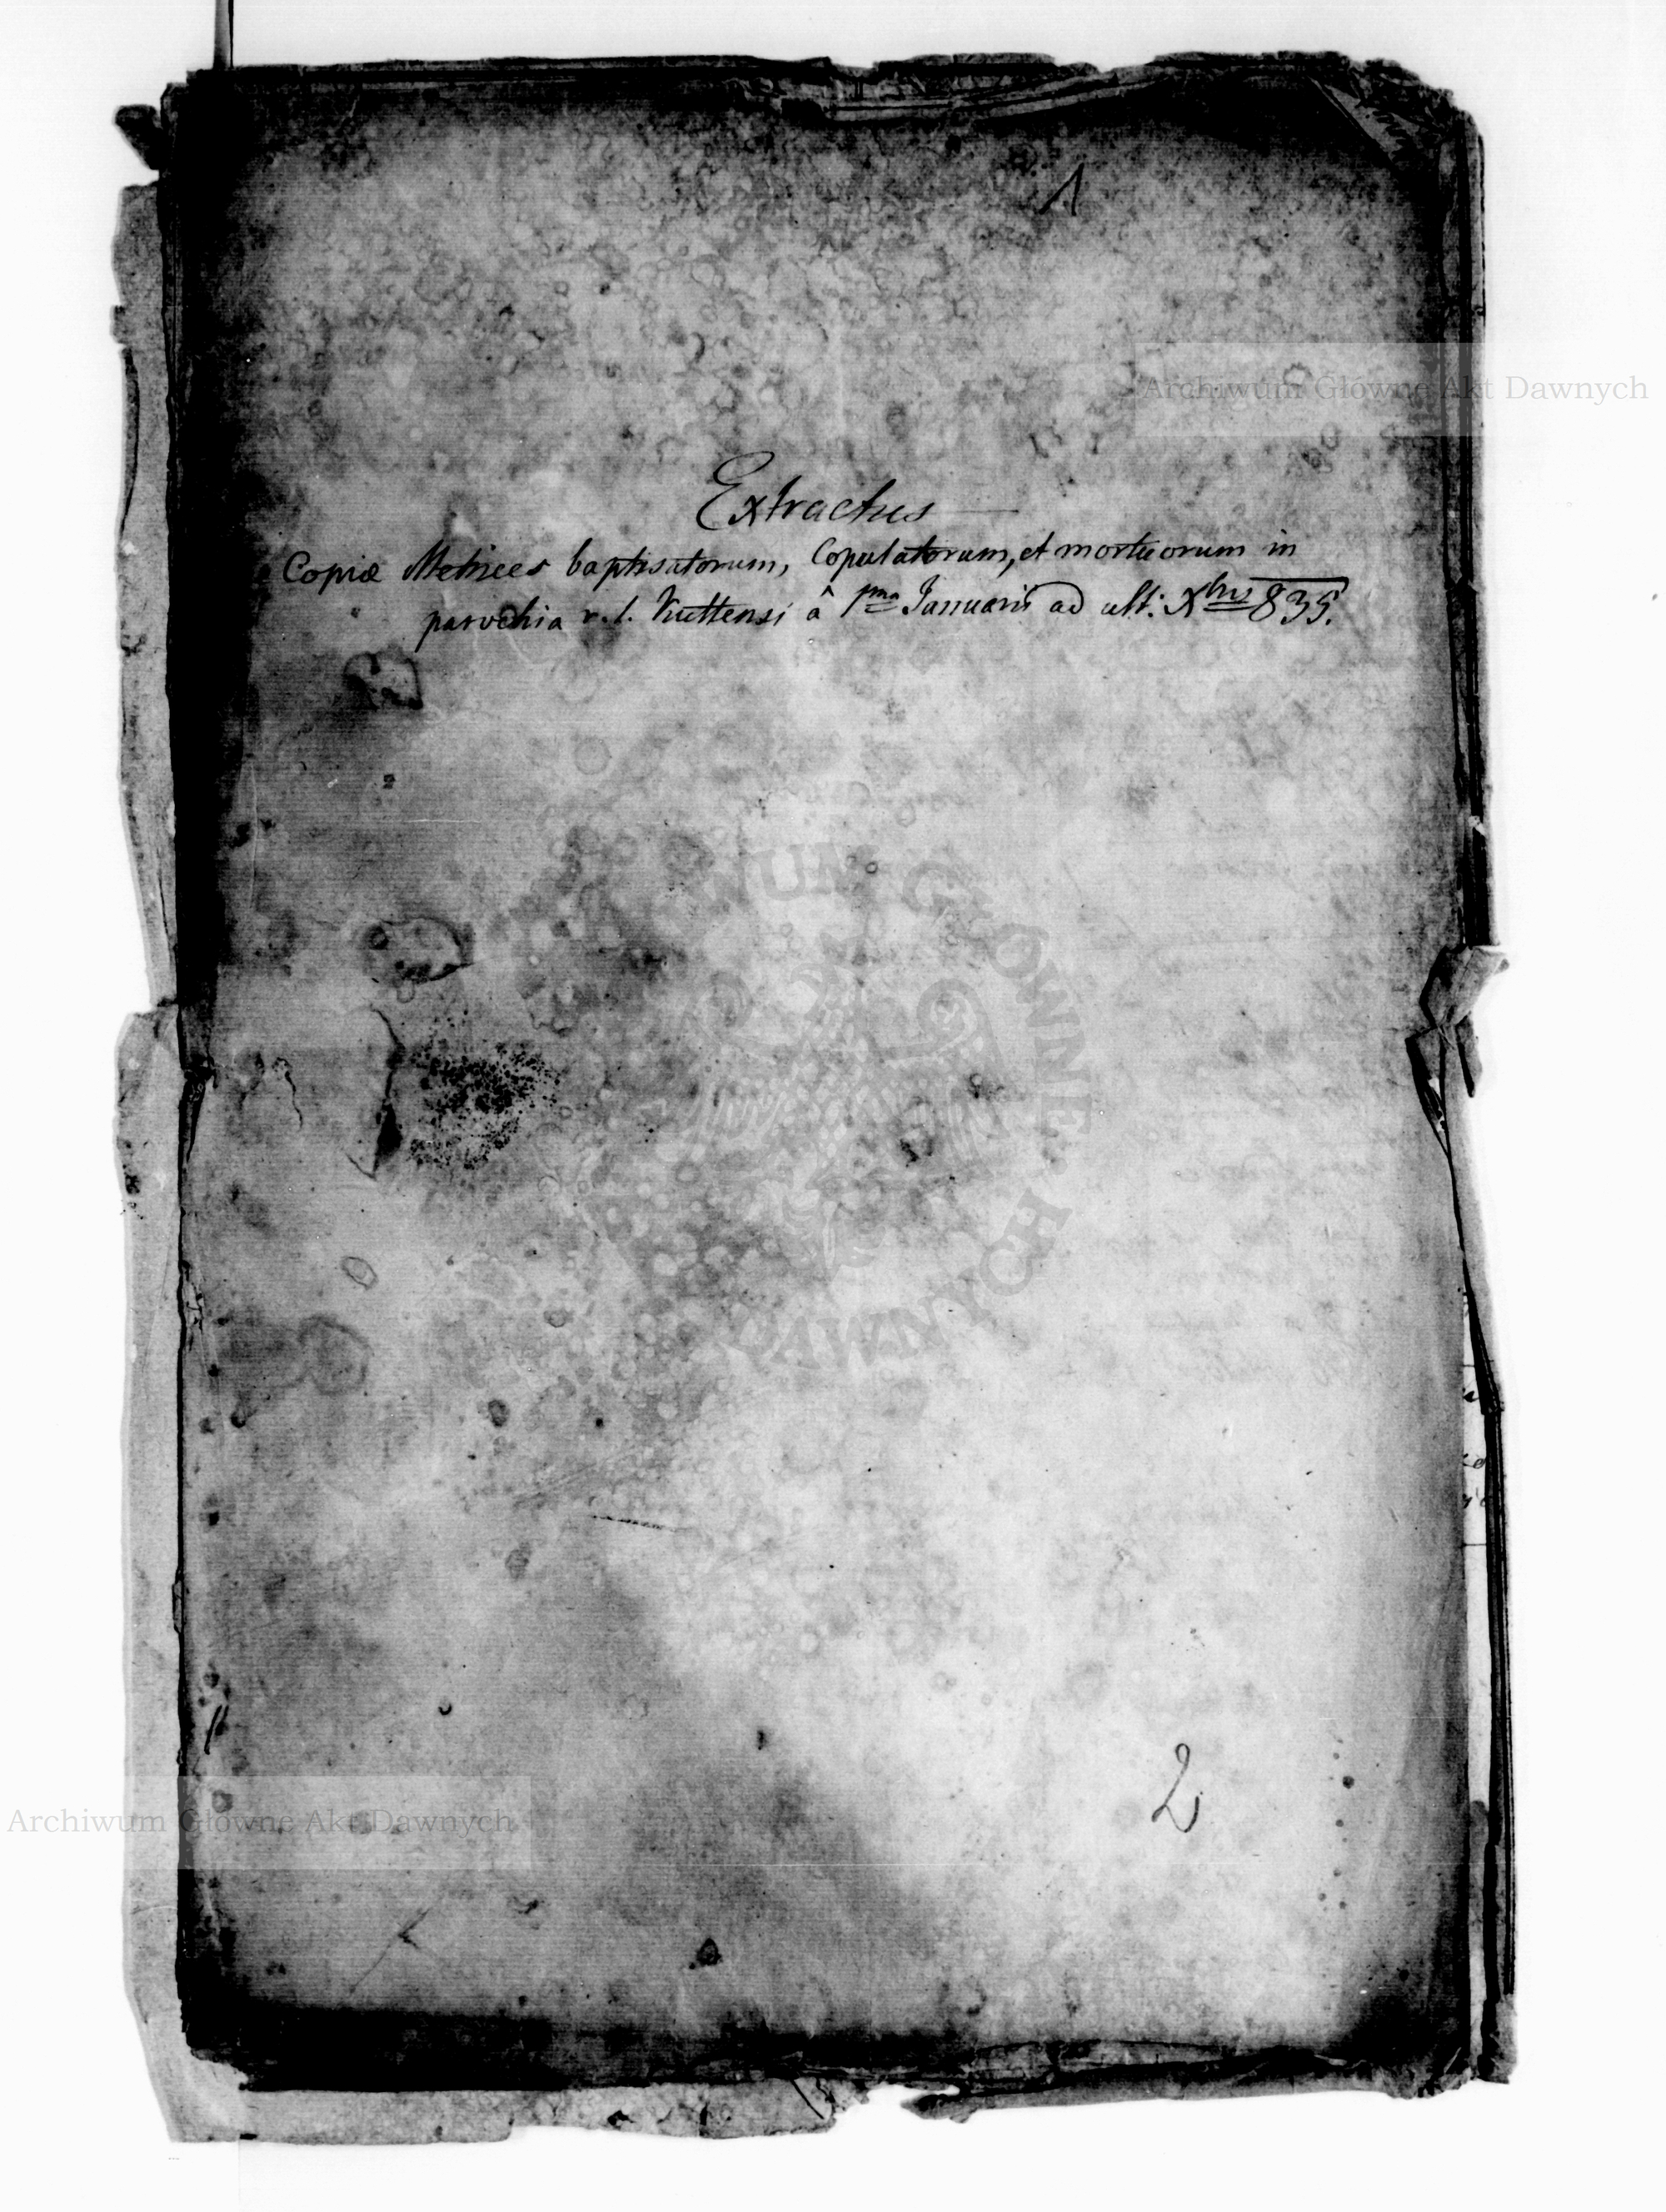 1
Archiwum Główne Akt Dawnych
Extractus
Copiæ Metrices baptisatorum, Copulatorum, et mortuorum in
parochia r. l. Kuttensi â 1ma Januarii ad ult: Xbris 835.
ARCHIWUM GŁÓWNE AKT DAWNYCH
2
Archiwum Główne Akt Dawnych